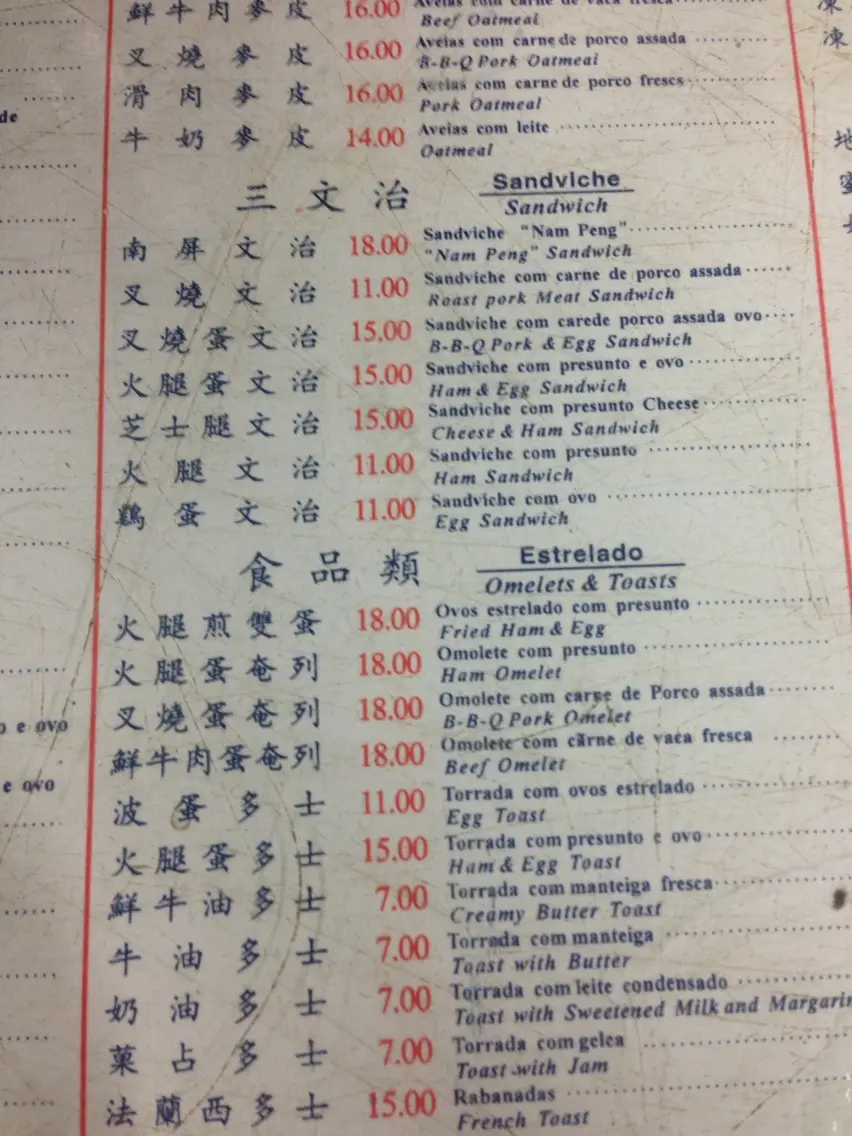 鮮牛肉麥皮 16.00 Aveias com carne de vaca fresca
Beef Oatmeal
叉燒麥皮 16.00 Aveias com carne de porco assada
B-B-Q Pork Oatmeal
滑肉麥皮 16.00 Aveias com carne de porco fresca
Pork Oatmeal
牛奶麥皮 14.00 Aveias com leite
Oatmeal
三文治 Sandviche
Sandwich
南屏文治 18.00 Sandviche "Nam Peng"
"Nam Peng" Sandwich
叉燒文治 11.00 Sandviche com carne de porco assada
Roast pork Meat Sandwich
叉燒蛋文治 15.00 Sandviche com carede porco assada ovo
B-B-Q Pork & Egg Sandwich
火腿蛋文治 15.00 Sandviche com presunto e ovo
Ham & Egg Sandwich
芝士腿文治 15.00 Sandviche com presunto Cheese
Cheese & Ham Sandwich
火腿文治 11.00 Sandviche com presunto
Ham Sandwich
鷄蛋文治 11.00 Sandviche com ovo
Egg Sandwich
食品類 Estrelado
Omelets & Toasts
火腿煎雙蛋 18.00 Ovos estrelado com presunto
Fried Ham & Egg
火腿蛋奄列 18.00 Omolete com presunto
Ham Omelet
叉燒蛋奄列 18.00 Omolete com carne de Porco assada
B-B-Q Pork Omelet
鮮牛肉蛋奄列 18.00 Omolete com cãrne de vaca fresca
Beef Omelet
波蛋多士 11.00 Torrada com ovos estrelado
Egg Toast
火腿蛋多士 15.00 Torrada com presunto e ovo
Ham & Egg Toast
鮮牛油多士 7.00 Torrada com manteiga fresca
Creamy Butter Toast
牛油多士 7.00 Torrada com manteiga
Toast with Butter
奶油多士 7.00 Torrada com leite condensado
Toast with Sweetened Milk and Margarin
菓占多士 7.00 Torrada com gelea
Toast with Jam
法蘭西多士 15.00 Rabanadas
French Toast
de
e ovo
e ovo
凍
凍
地